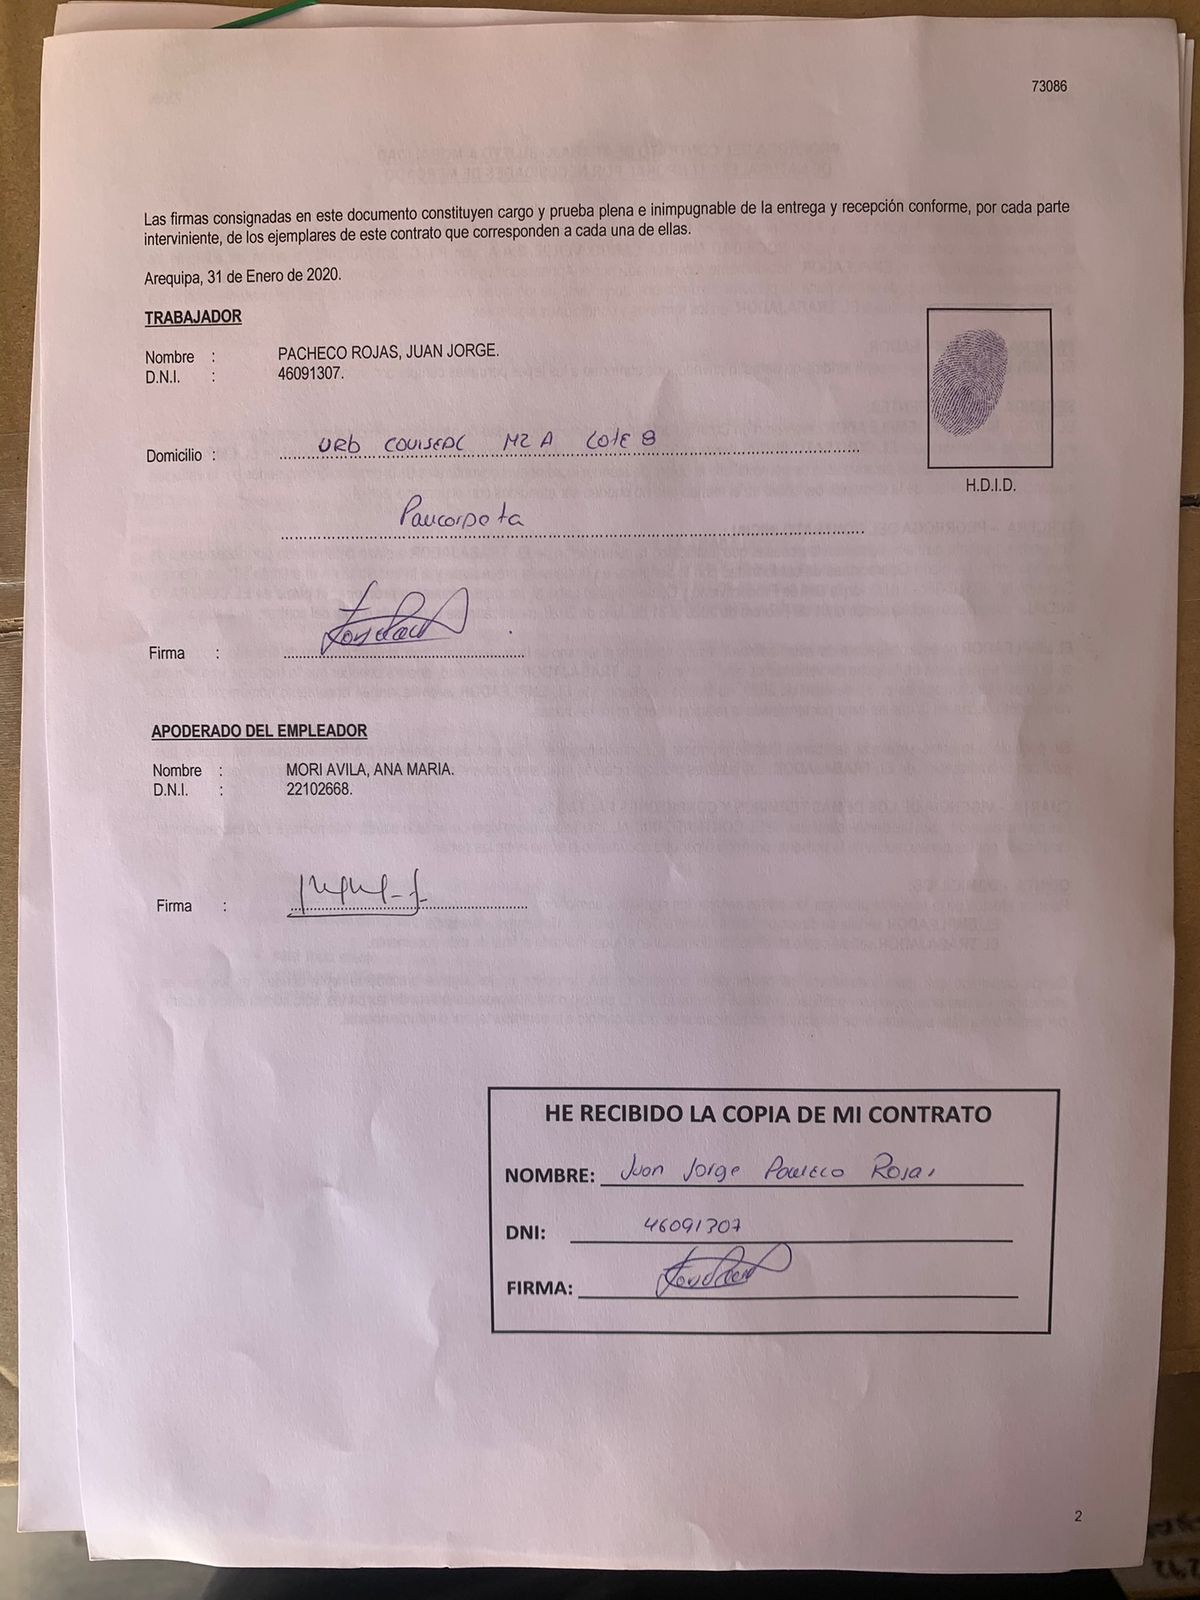 73086
Las firmas consignadas en este documento constituyen cargo y prueba plena e inimpugnable de la entrega y recepción conforme, por cada parte
interviniente, de los ejemplares de este contrato que corresponden a cada una de ellas.
Arequipa, 31 de Enero de 2020.
TRABAJADOR
Nombre : PACHECO ROJAS, JUAN JORGE.
D.N.I. : 46091307.
Domicilio : URb COVISEAC MZ A LOTE 8
Paucarpata
H.D.I.D.
Firma :
APODERADO DEL EMPLEADOR
Nombre : MORI AVILA, ANA MARIA.
D.N.I. : 22102668.
Firma :
HE RECIBIDO LA COPIA DE MI CONTRATO
NOMBRE: Juan Jorge Pacheco Rojas
DNI: 46091307
FIRMA:
2